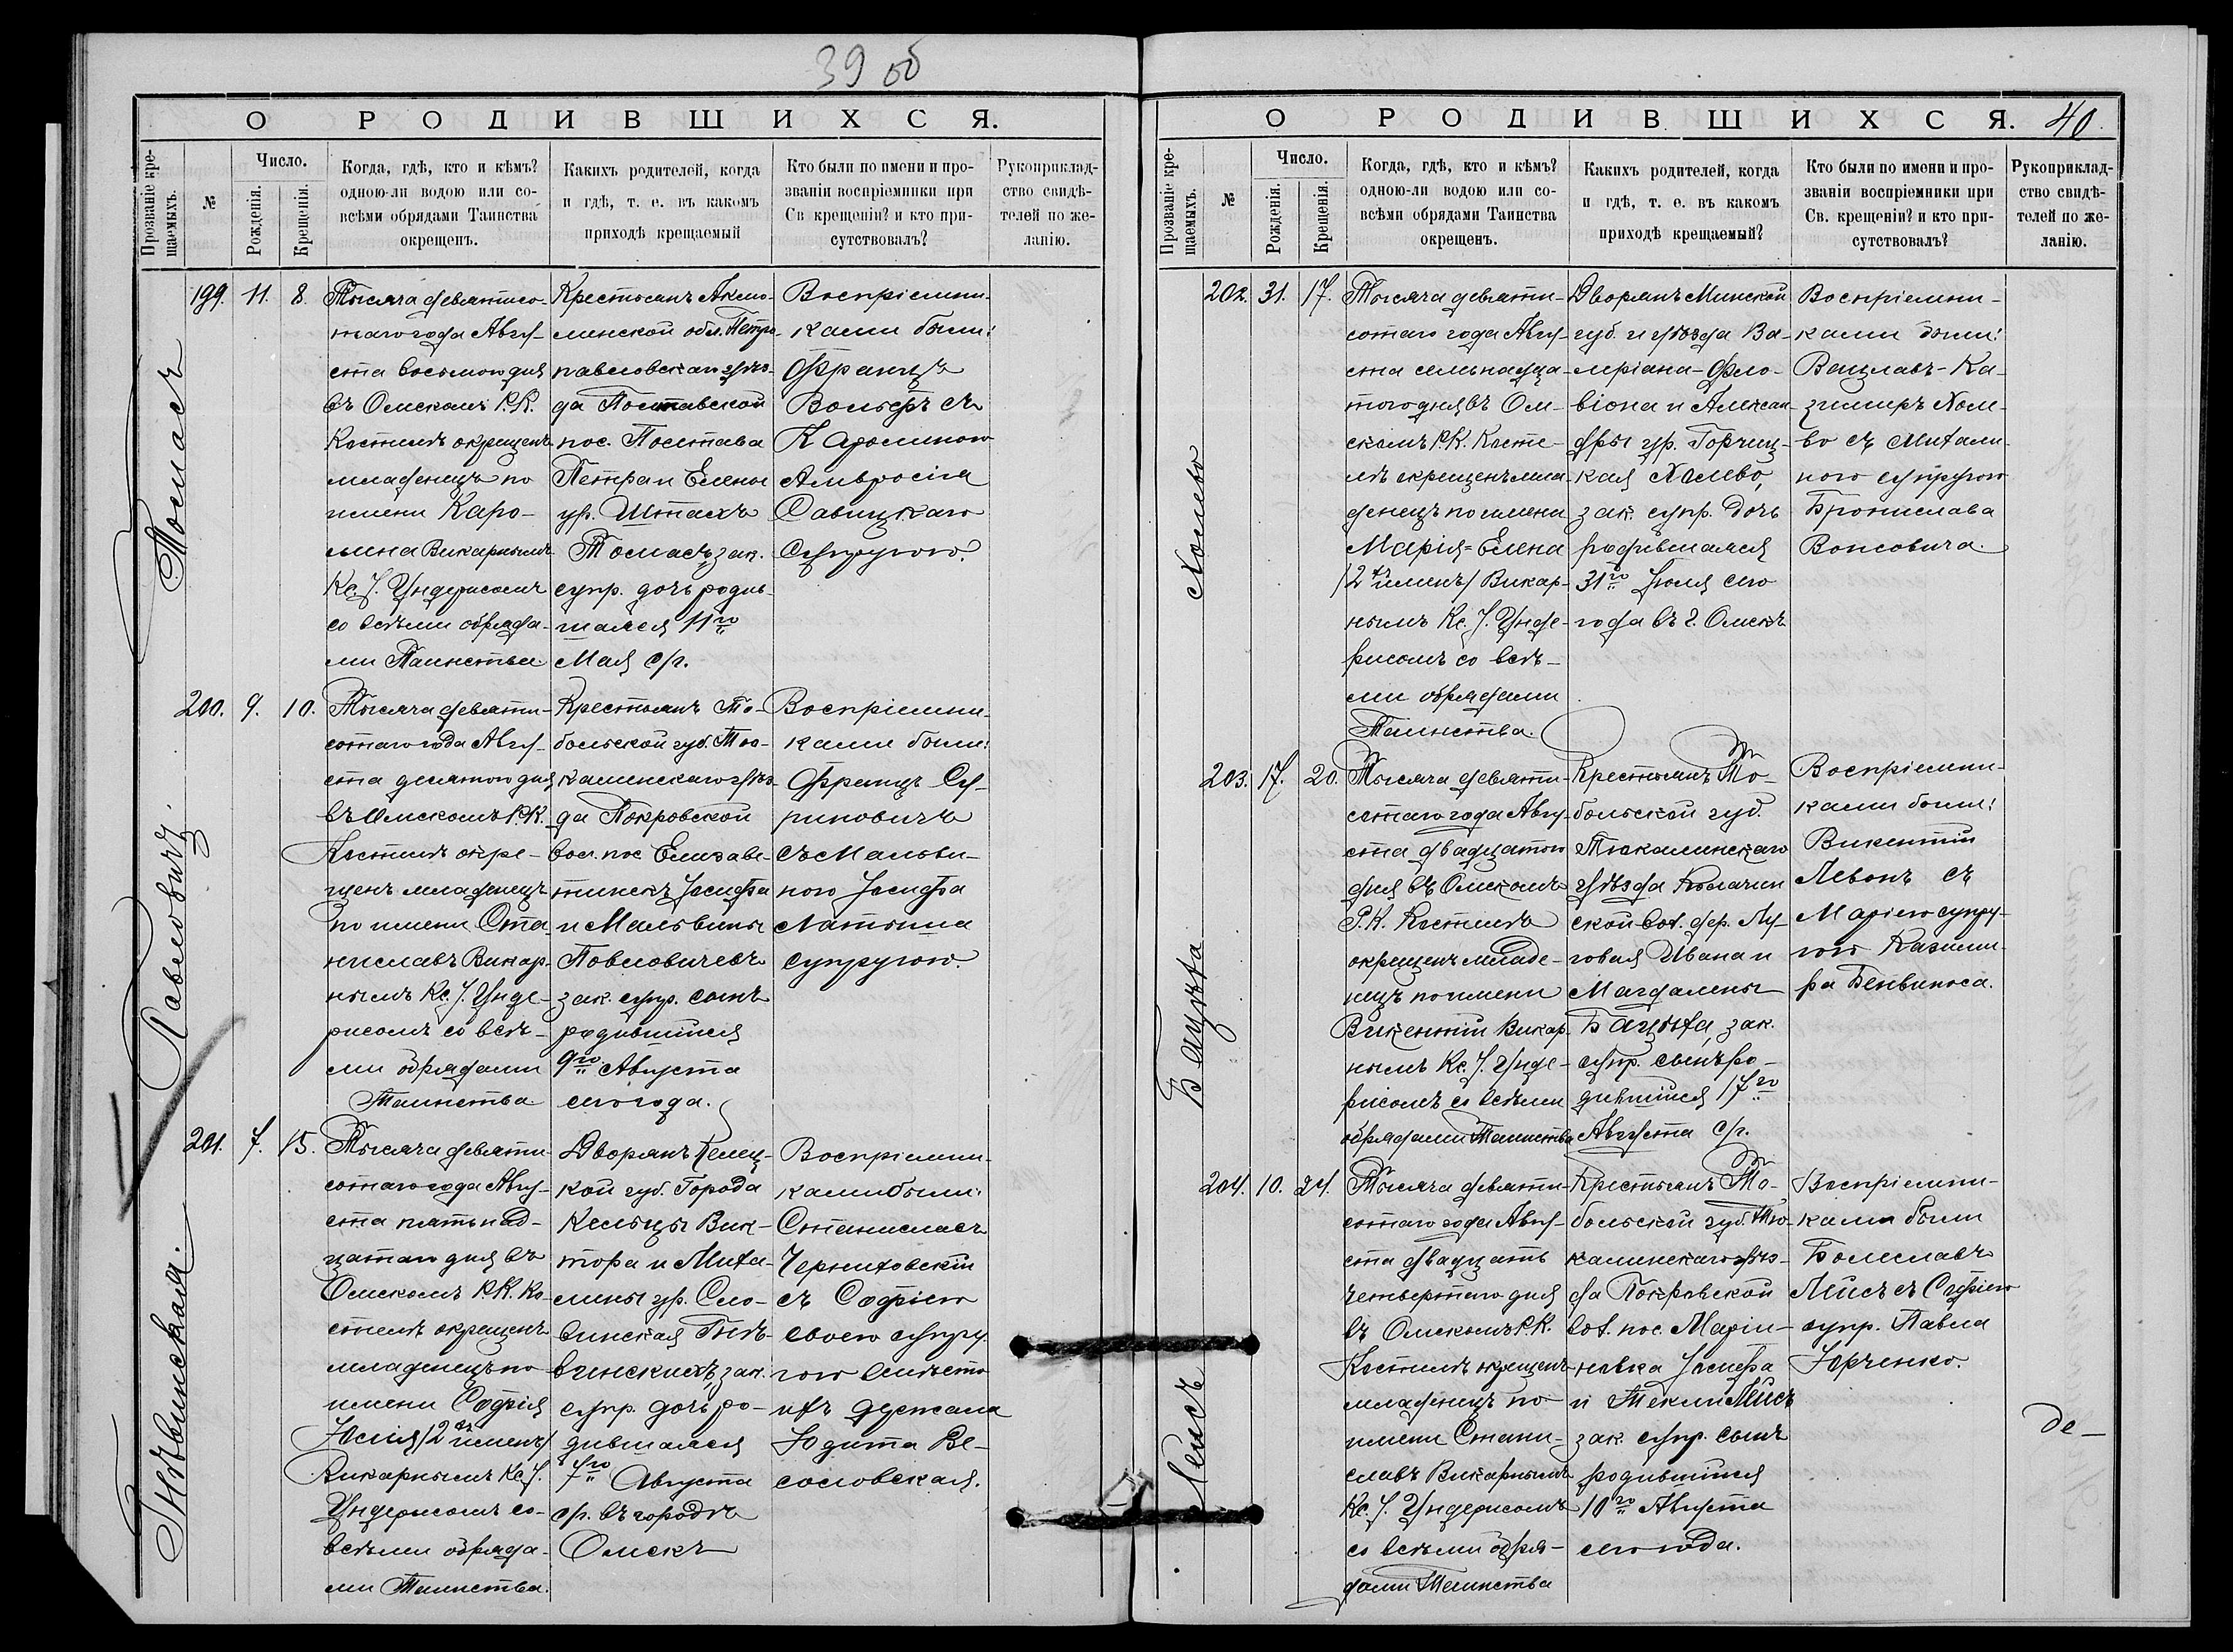 39 об
О РОДИВШИХСЯ.
Прозваніе кре-
щаемыхъ.
№
Число.
Рожденія.
Крещенія.
Когда, гдѣ, кто и кѣмъ?
одною-ли водою или со-
всѣми обрядами Таинства
окрещенъ.
Какихъ родителей, когда
и гдѣ, т. е. въ какомъ
приходѣ крещаемый
Кто были по имени и про-
званіи воспріемники при
Св крещеніи? и кто при-
сутствовалъ?
Рукоприклад-
ство свидѣ-
телей по же-
ланію.
Томасъ
199. 11. 8.
Тысяча девятисо-
таго года Авгу-
ста восьмого дня
въ Омскомъ Р.К.
Костелѣ окрещенъ
младенецъ по
имени Каро-
лина Викарнымъ
Кс. J. Ундерисомъ
со всѣми обряда-
ми Таинства
Крестьянъ Акмо-
линской обл. Петро-
павловскаго уѣз-
да Полтавской
пос. Полтава
Петра и Елены
ур. Штахъ
Томасъ, зак.
супр. дочь родив-
шаяся 11го
Мая с/г.
Воспріемни-
ками были:
Францъ
Вольфъ съ
Каролиною
Амвросія
Савицкаго
Супругою.
Павловичъ
200. 9. 10.
Тысяча девяти-
сотаго года Авгу-
ста десятого дня
въ Омскомъ Р.К.
Костелѣ окре-
щенъ младенецъ
по имени Ста-
ниславъ Викар-
нымъ Кс. J. Унде-
рисомъ со всѣ-
ми обрядами
Таинства
Крестьянъ То-
больской губ. Тю-
калинскаго уѣз-
да Покровской
вол. пос Елизаве-
тинскъ Іосифа
и Мальвины
Повловичевъ
зак. супр. сынъ
родившійся
9го Августа
сего года.
Воспріемни-
ками были:
Францъ Су-
риновичъ
съ Мальви-
ною Іосифа
Латыша
супругою.
Гнѣвинская.
201. 7. 15.
Тысяча девяти-
сотаго года Авгу-
ста пятьнад-
цатаго дня въ
Омскомъ Р.К. Ко-
стелѣ окрещенъ
младенецъ по
имени Софія
Юлія /2 хъ именъ/
Викарнымъ Кс. J.
Ундерисомъ со
всѣми обряда-
ми Таинства.
Дворянъ Келец-
кой губ. Города
Кельцы Вик-
тора и Миха-
лины ур. Сло-
винская Гнѣ-
винскихъ, зак.
супр. дочь ро-
дившаяся
7го Августа
с/г. въ городѣ
Омскъ
Воспріемни-
ками были:
Станиславъ
съ Софіею
своею супру-
гою вмѣсто
ихъ держала
Юдита Ве-
соловская.
О РОДИВШИХСЯ.
40.
Прозваніе кре-
щаемыхъ.
№
Число.
Рожденія.
Крещенія.
Когда, гдѣ, кто и кѣмъ?
одною-ли водою или со-
всѣми обрядами Таинства
окрещенъ.
Какихъ родителей, когда
и гдѣ, т. е. въ какомъ
приходѣ крещаемый?
Кто были по имени и про-
званіи воспріемники при
Св. крещеніи? и кто при-
сутствовалъ?
Рукоприклад-
ство свидѣ-
телей по же-
ланію.
Холево
202. 31. 17.
Тысяча девяти-
сотаго года Авгу-
ста семьнадца-
того дня въ Ом-
скомъ Р.К. Косте-
лѣ окрещенъ мла-
денецъ по имени
Марія=Елена
/2 хъ именъ/ Викар-
нымъ Кс. J. Унде-
рисомъ со всѣ-
ми обрядами
Таинства.
Дворянъ Минской
губ. и уѣзда Ва-
леріана-Фло-
віона и Алексан-
дры ур. Горчиц-
кая Холево,
зак. супр. дочь
родившаяся
31го Іюля сего
года въ г. Омскѣ
Воспріемни-
ками были:
Вацлавъ-Ка-
зимиръ Холе-
во съ Михали-
ною супругою
Бронислава
Вонсовича.
Бацюха
203. 17. 20.
Тысяча девяти-
сотаго года Авгу-
ста двадцатого
дня въ Омскомъ
Р.К. Костелѣ
окрещенъ младе-
нецъ по имени
Викентій Викар-
нымъ Кс. J. Унде-
рисомъ со всѣми
обрядами Таинства
Крестьянъ То-
больской губ.
Тюкалинскаго
уѣзда Колачин
ской вол. дер. Лу-
говая Ивана и
Магдалены
Бацюха, зак.
супр. сынъ ро-
дившійся 17го
Августа с/г.
Воспріемни-
ками были:
Викентій
Левонъ съ
Маріею супру-
гою Казими-
ра Бенвиноса.
Лисъ
204. 10. 24.
Тысяча девяти-
сотаго года Авгу-
ста двадцать
четвертаго дня
въ Омскомъ Р.К.
Костелѣ окрещенъ
младенецъ по
имени Стани-
славъ Викарнымъ
Кс. J. Ундерисомъ
со всѣми обря-
дами Таинства
Крестьянъ То-
больской губ. Тю-
калинскаго уѣз-
да Покровской
вол. пос. Марiи-
новка Іосифа
и Текли Лисъ
зак. супр. сынъ
родившійся
10го Августа
сего года.
Воспріемни-
ками были
Болеславъ
Лисъ съ Софіею
супр. Павла
Юрченко.